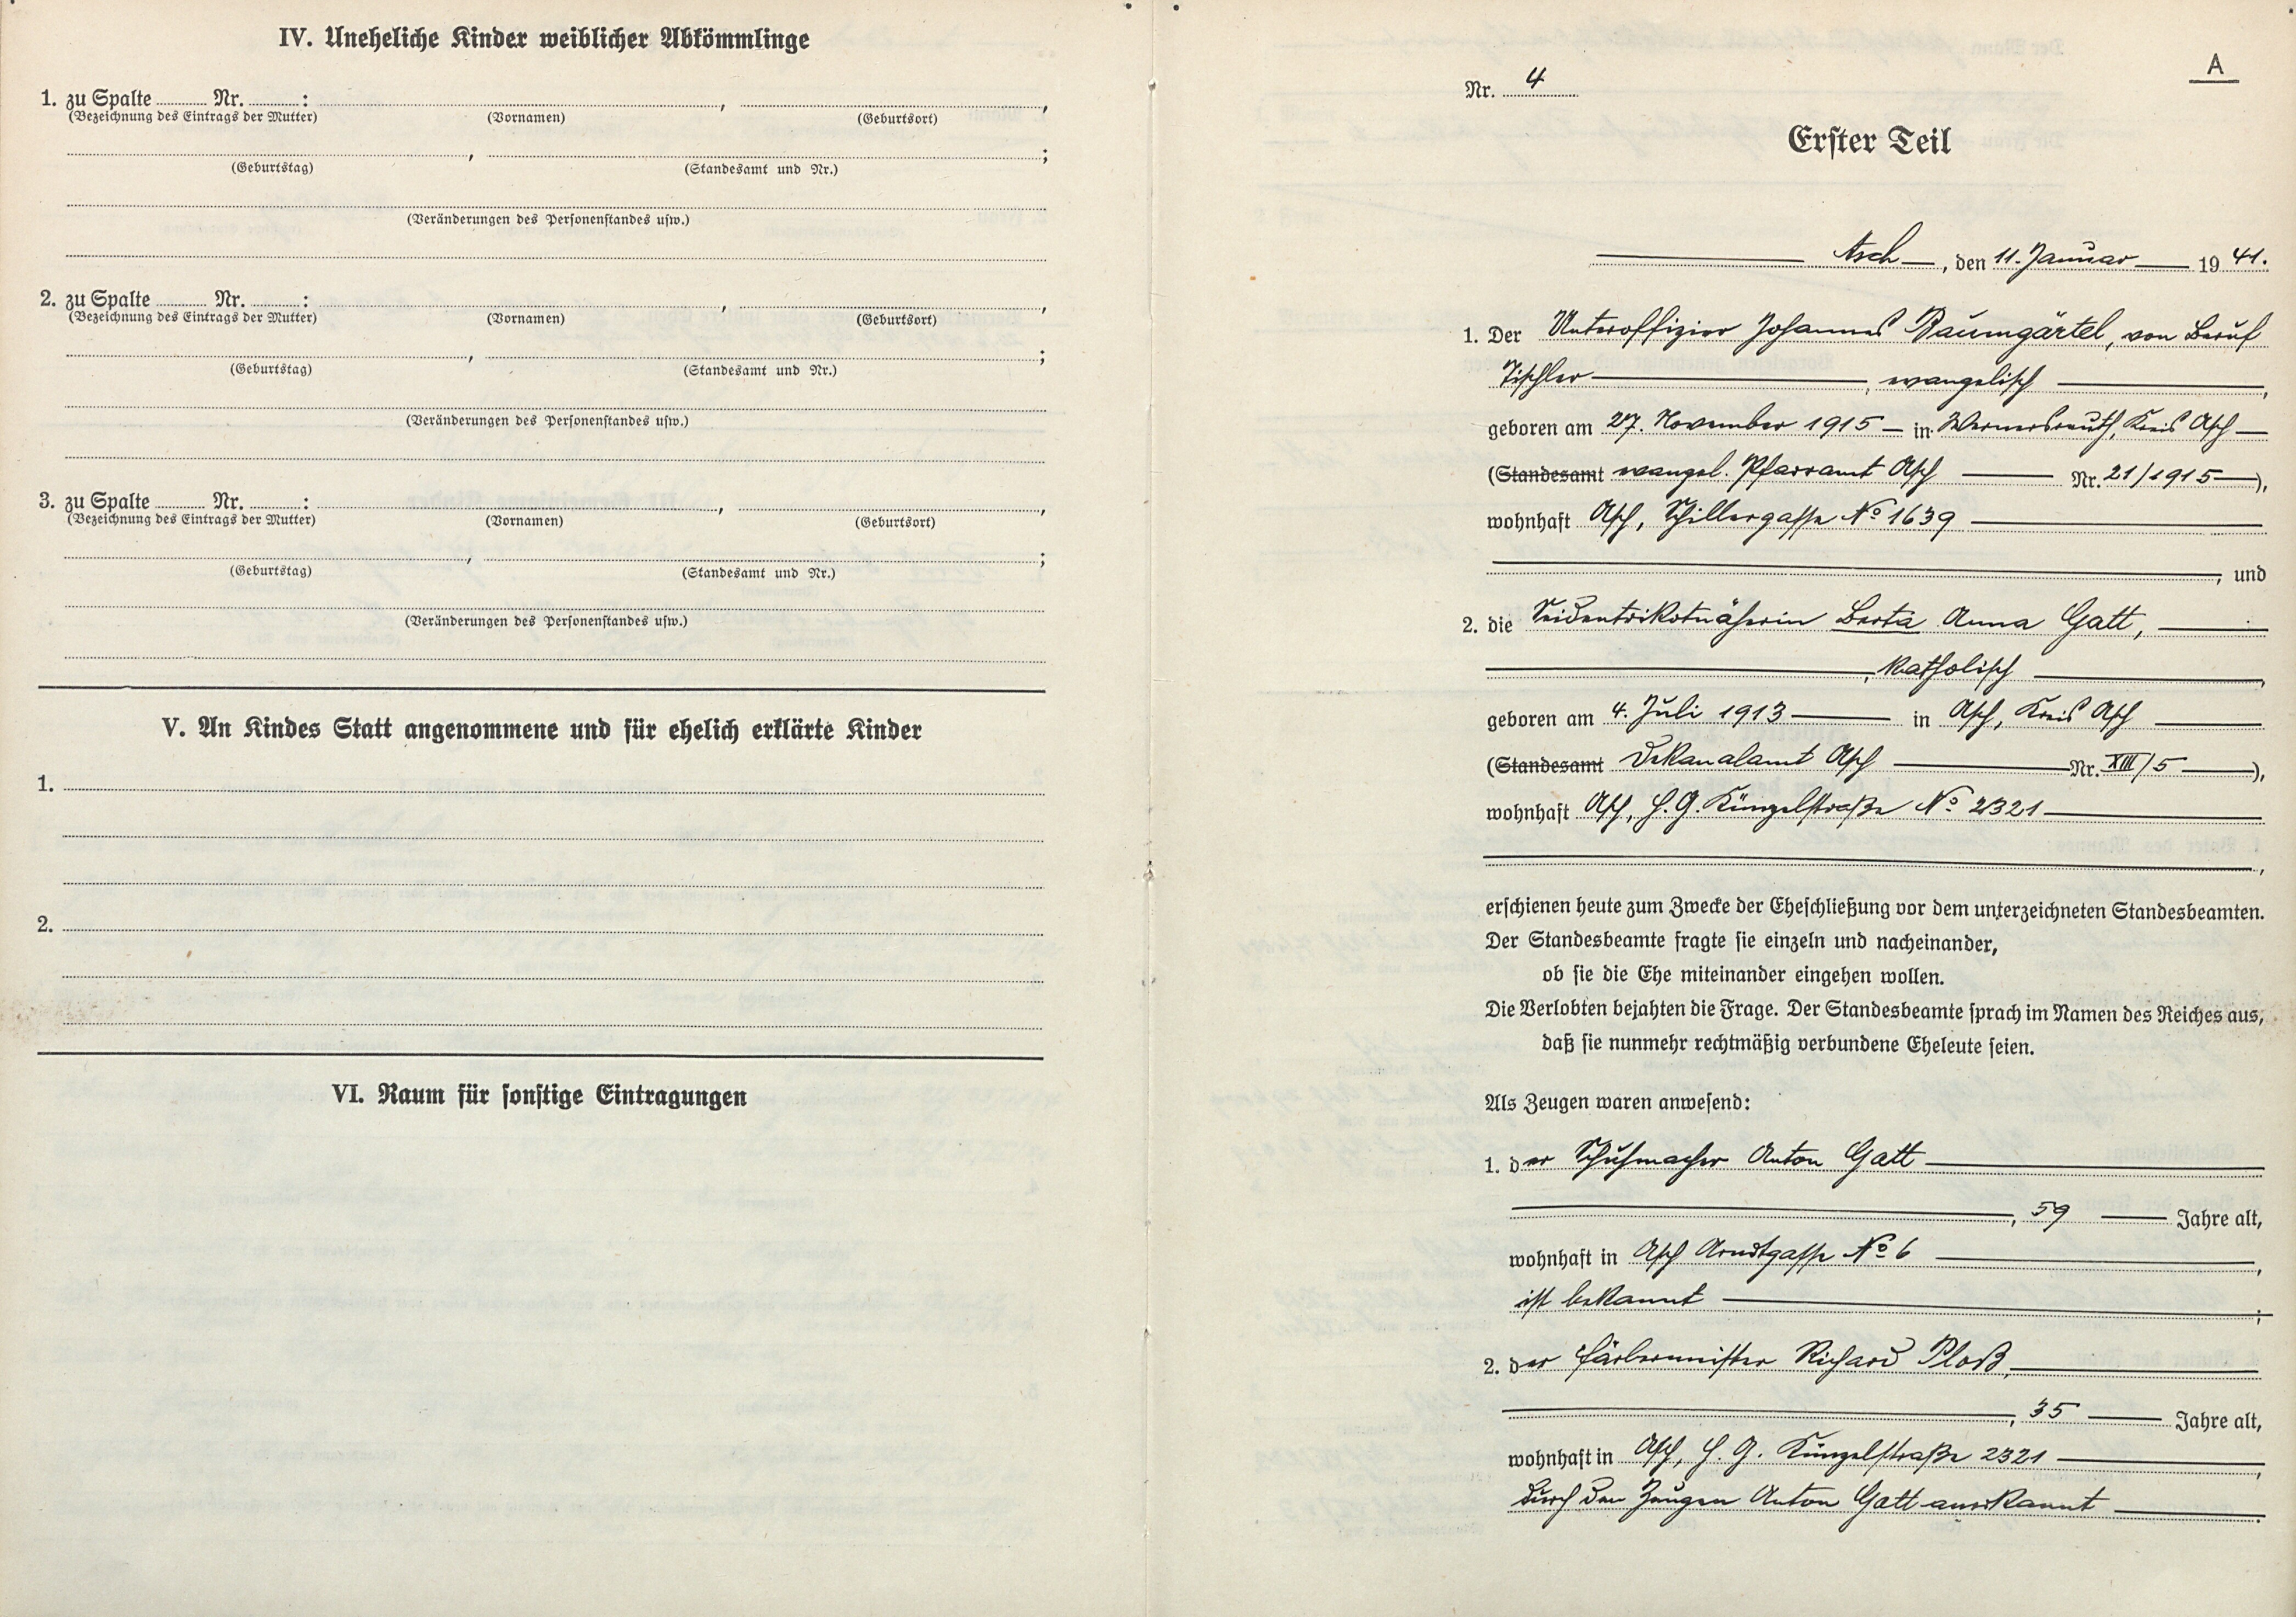 IV. Uneheliche Kinder weiblicher Abkömmlinge
1. zu Spalte ........ Nr. ........: ........, ........,
(Bezeichnung des Eintrags der Mutter) (Vornamen) (Geburtsort)
........, ........;
(Geburtstag) (Standesamt und Nr.)
(Veränderungen des Personenstandes usw.)
2. zu Spalte ........ Nr. ........: ........, ........,
(Bezeichnung des Eintrags der Mutter) (Vornamen) (Geburtsort)
........, ........;
(Geburtstag) (Standesamt und Nr.)
(Veränderungen des Personenstandes usw.)
3. zu Spalte ........ Nr. ........: ........, ........,
(Bezeichnung des Eintrags der Mutter) (Vornamen) (Geburtsort)
........, ........;
(Geburtstag) (Standesamt und Nr.)
(Veränderungen des Personenstandes usw.)
V. An Kindes Statt angenommene und für ehelich erklärte Kinder
1.
2.
VI. Raum für sonstige Eintragungen
A
Nr. 4
Erster Teil
Asch, den 11. Januar 19 41.
1. Der Unteroffizier Johannes Baumgärtel, von Beruf
Tischler, evangelisch,
geboren am 27. November 1915 in Wernersreuth, Kreis Asch
(Standesamt evangel. Pfarramt Asch Nr. 21/1915),
wohnhaft Asch, Schillergasse No 1639
, und
2. die Seidentrikotnäherin Berta Anna Gatt,
, katholisch,
geboren am 4. Juli 1913 in Asch, Kreis Asch
(Standesamt Dekanalamt Asch Nr. XIII/5),
wohnhaft Asch, H. G. Künzelstraße No 2321
,
erschienen heute zum Zwecke der Eheschließung vor dem unterzeichneten Standesbeamten.
Der Standesbeamte fragte sie einzeln und nacheinander,
ob sie die Ehe miteinander eingehen wollen.
Die Verlobten bejahten die Frage. Der Standesbeamte sprach im Namen des Reiches aus,
daß sie nunmehr rechtmäßig verbundene Eheleute seien.
Als Zeugen waren anwesend:
1. der Schuhmacher Anton Gatt
, 59 Jahre alt,
wohnhaft in Asch Arndtgasse No 6,
ist bekannt;
2. der Färbermeister Richard Ploß,
, 35 Jahre alt,
wohnhaft in Asch, H. G. Künzelstraße 2321,
durch den Zeugen Anton Gatt anerkannt.